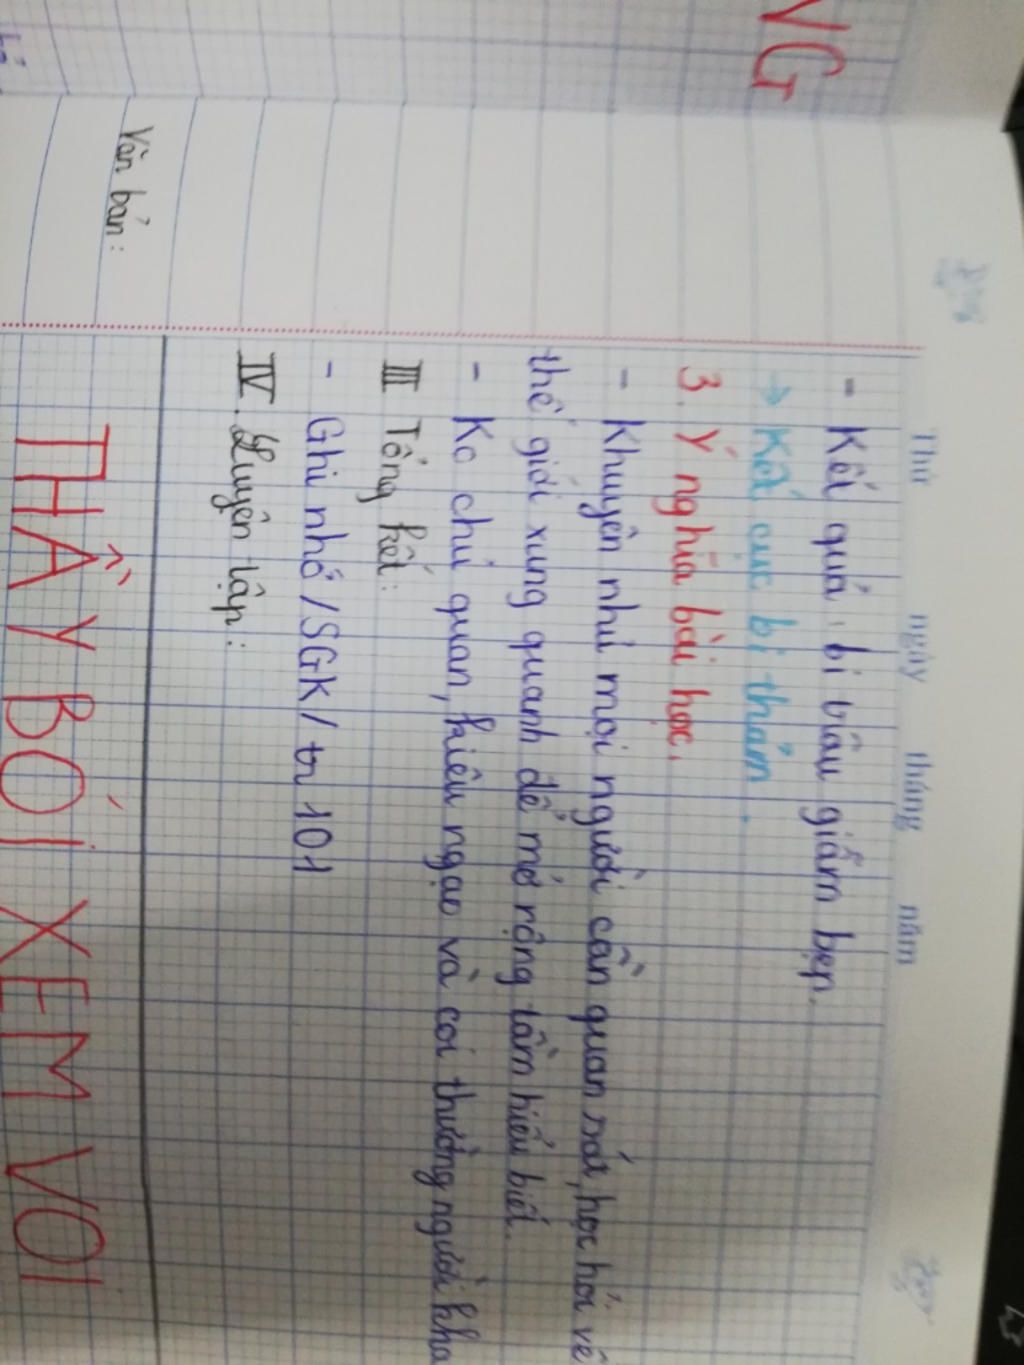 NG
Thứ ngày tháng năm
- Kết quả: bị trâu giẫm bẹp.
→ Kết cục bi thảm.
3. Ý nghĩa bài học.
- Khuyên nhủ mọi người cần quan sát, học hỏi về
thế giới xung quanh để mở rộng tầm hiểu biết.
- Ko chủ quan, kiêu ngạo và coi thường người khá
III Tổng kết:
- Ghi nhớ / SGK / tr 101
IV. Luyện tập:
Văn bản:
THẦY BÓI XEM VOI